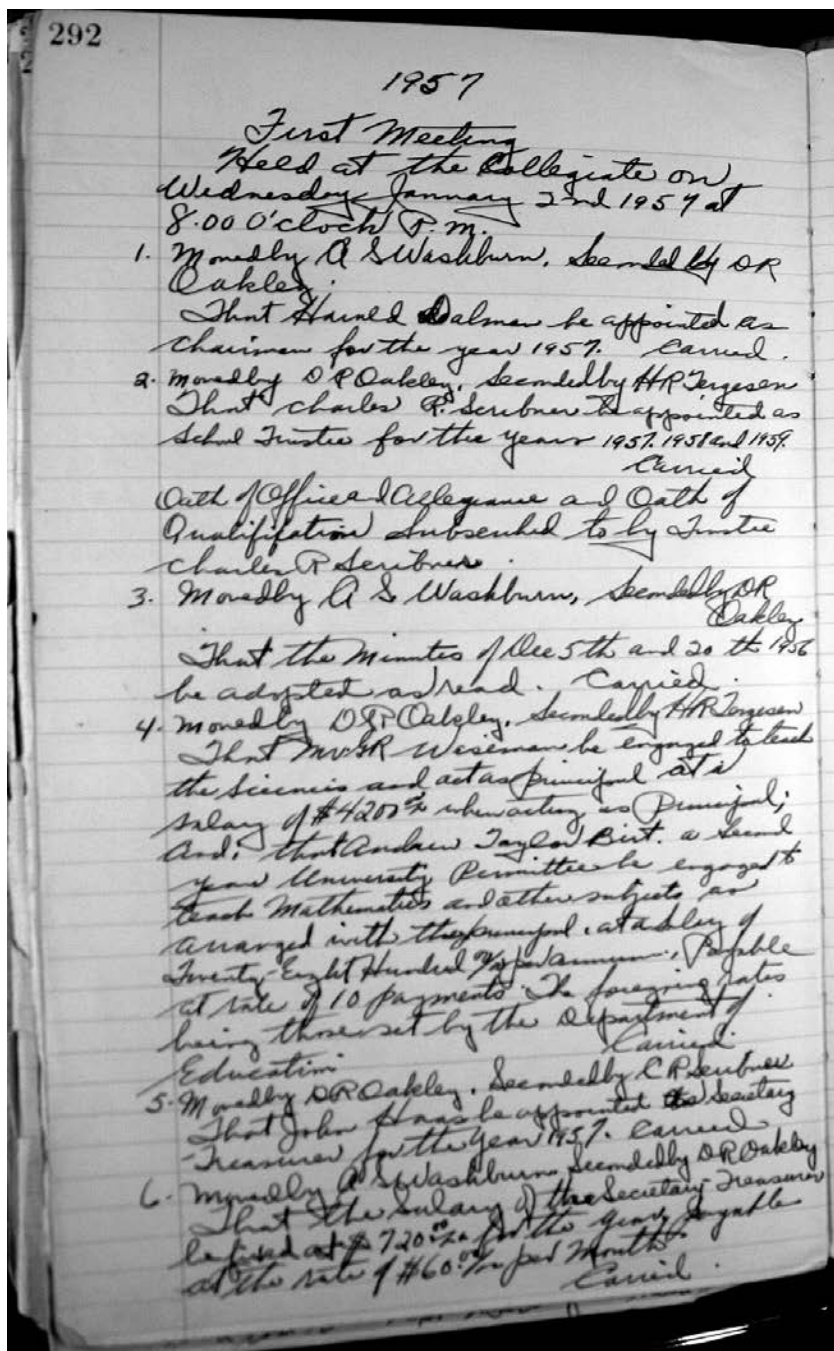 292
1957
First Meeting
Held at the Collegiate on
Wednesday January 2nd 1957 at
8.00 O'clock P.M.
1. Moved by A S Washburn, Seconded by DR
Oakley.
That Harold Dalman be appointed as
Chairman for the year 1957. Carried.
2. Moved by D R Oakley, Seconded by H R Tergesen
That Charles R. Scribner be appointed as
School Trustee for the years 1957. 1958 and 1959.
Carried
Oath of Office and Allegiance and Oath of
Qualifification Subscribed to by Trustee
Charles R Scribner.
3. Moved by A S Washburn, Seconded by DR
Oakley
That the Minutes of Dec 5th and 20th 1956
be adopted as read. Carried.
4. Moved by D R Oakley, Seconded by H R Tergesen
That Mr GR Wiseman be engaged to teach
the Sciences and act as principal at a
salary of $4200 00/xx when acting as Principal;
And, that Andrew Taylor Birt. a Second
year University Permittee be engaged to
teach Mathematics and other subjects as
arranged with the principal. at a salary of
Twenty-Eight Hundred 00/xx per annum, Payable
at rate of 10 payments. The foregoing rates
being those set by the Department of
Education. Carried.
5. Moved by DR Oakley. Seconded by C R Scribner
That John Haas be appointed as Secretary
Treasurer for the Year 1957. Carried
6. Moved by A S Washburn Seconded by DR Oakley
That the Salary of the Secretary-Treasurer
be fixed at $720.00/xx for the year, payable
at the rate of $60.00/xx per Month.
Carried.